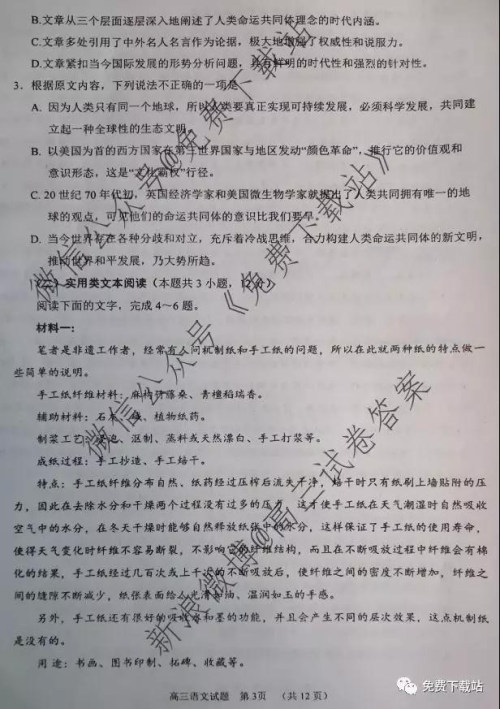 B.文章从三个层面逐层深入地阐述了人类命运共同体理念的时代内涵。
C.文章多处引用了中外名人名言作为论据，极大地增强了权威性和说服力。
D.文章紧扣当今国际发展的形势分析问题，具有鲜明的时代性和强烈的针对性。
3. 根据原文内容，下列说法不正确的一项是
A. 因为人类只有同一个地球，所以人类要真正实现可持续发展，必须科学发展，共同建
立起一种全球性的生态文明。
B. 以美国为首的西方国家在第三世界国家与地区发动“颜色革命”，推行它的价值观和
意识形态，这是“文化霸权”行径。
C. 20世纪70年代初，英国经济学家和美国微生物学家就提出了人类共同拥有唯一的地
球的观点，可见他们的命运共同体的意识比我们要早。
D. 当今世界存在各种分歧和对立，充斥着冷战思维，合力构建人类命运共同体的新文明，
推动世界和平发展，乃大势所趋。
（二）实用类文本阅读（本题共3小题，12分）
阅读下面的文字，完成4～6题。
材料一：
笔者是非遗工作者，经常有人问机制纸和手工纸的问题，所以在此就两种纸的特点做一
些简单的说明。
手工纸纤维材料：麻构竹藤桑、青檀稻瑞香。
辅助材料：石灰、碱、植物纸药。
制浆工艺：浸泡、沤制、蒸料或天然漂白、手工打浆等。
成纸过程：手工抄造、手工焙干。
特点：手工纸纤维分布自然、纸药经过压榨后流失干净，焙干时只有纸刷上墙贴附的压
力，因此在去除水分和干燥两个过程没有过多的压力，这才使手工纸在天气潮湿时自然吸收
空气中的水分，在冬天干燥时能够自然释放纸张中的水分，这样保证了手工纸的使用寿命，
使得天气变化时纤维不容易断裂，不影响它的纤维结构，而且在不断吸放过程中纤维会有棉
化的结果，手工纸经过几百次或上千次的不断吸放后，使纤维之间的密度不断增加，纤维之
间的缝隙不断减少，纸张表面给人光滑如油、温润如玉的手感。
另外，手工纸还有很好的吸收水和墨的功能，并且会产生不同的层次效果，这点机制纸
是没有的。
用途：书画、图书印制、拓碑、收藏等。
高三语文试题 第3页 （共12页）
微信公众号@免费下载站
微信公众号《免费下载站》
新浪微博@高三试卷答案
免费下载站